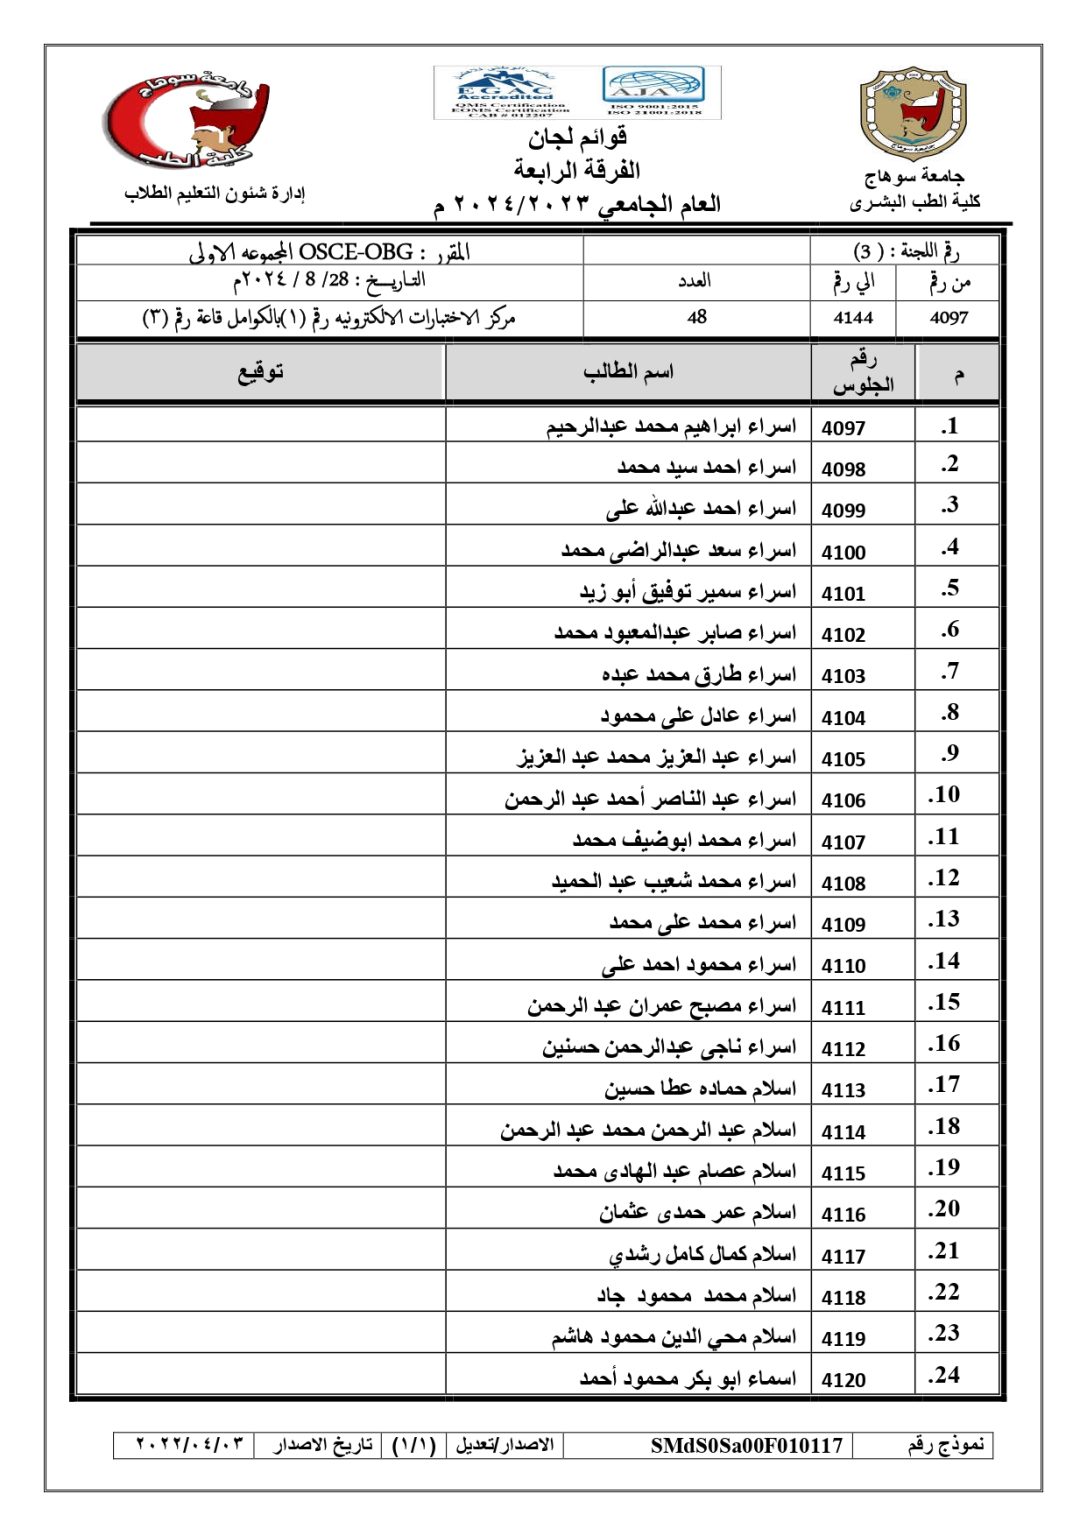 جامعة سوهاج
كلية الطب
إدارة شئون التعليم الطلاب
EGAC
Accredited
QMS Certification
EOMS Certification
CAB # 012207
AJA
ISO 9001:2015
ISO 21001:2018
جامعة سوهاج
جامعة سوهاج
كلية الطب البشرى
قوائم لجان
الفرقة الرابعة
العام الجامعي ٢٠٢٤/٢٠٢٣ م
رقم اللجنة : ( 3) المقرر : OSCE-OBG المجموعه الاولى
من رقم الي رقم العدد التاريـــخ : 28/ 8 / ٢٠٢٤م
4097 4144 48 مركز الاختبارات الالكترونيه رقم (١)بالكوامل قاعة رقم (٣)
م رقم الجلوس اسم الطالب توقيع
1. 4097 اسراء ابراهيم محمد عبدالرحيم
2. 4098 اسراء احمد سيد محمد
3. 4099 اسراء احمد عبدالله على
4. 4100 اسراء سعد عبدالراضى محمد
5. 4101 اسراء سمير توفيق أبو زيد
6. 4102 اسراء صابر عبدالمعبود محمد
7. 4103 اسراء طارق محمد عبده
8. 4104 اسراء عادل على محمود
9. 4105 اسراء عبد العزيز محمد عبد العزيز
10. 4106 اسراء عبد الناصر أحمد عبد الرحمن
11. 4107 اسراء محمد ابوضيف محمد
12. 4108 اسراء محمد شعيب عبد الحميد
13. 4109 اسراء محمد على محمد
14. 4110 اسراء محمود احمد على
15. 4111 اسراء مصبح عمران عبد الرحمن
16. 4112 اسراء ناجى عبدالرحمن حسنين
17. 4113 اسلام حماده عطا حسين
18. 4114 اسلام عبد الرحمن محمد عبد الرحمن
19. 4115 اسلام عصام عبد الهادى محمد
20. 4116 اسلام عمر حمدى عثمان
21. 4117 اسلام كمال كامل رشدي
22. 4118 اسلام محمد محمود جاد
23. 4119 اسلام محي الدين محمود هاشم
24. 4120 اسماء ابو بكر محمود أحمد
نموذج رقم SMdS0Sa00F010117 الاصدار/تعديل (١/١) تاريخ الاصدار ٢٠٢٢/٠٤/٠٣